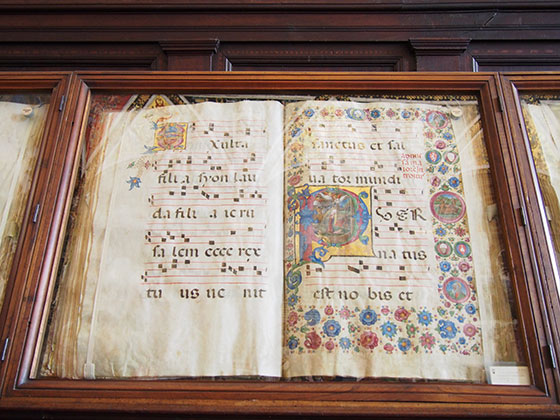 Exulta
fili a syon lau
da fili a ieru
sa lem ecce rex
tu us ue nit
sanctus et sal
ua tor mundi
PUER
na tus
est no bis et